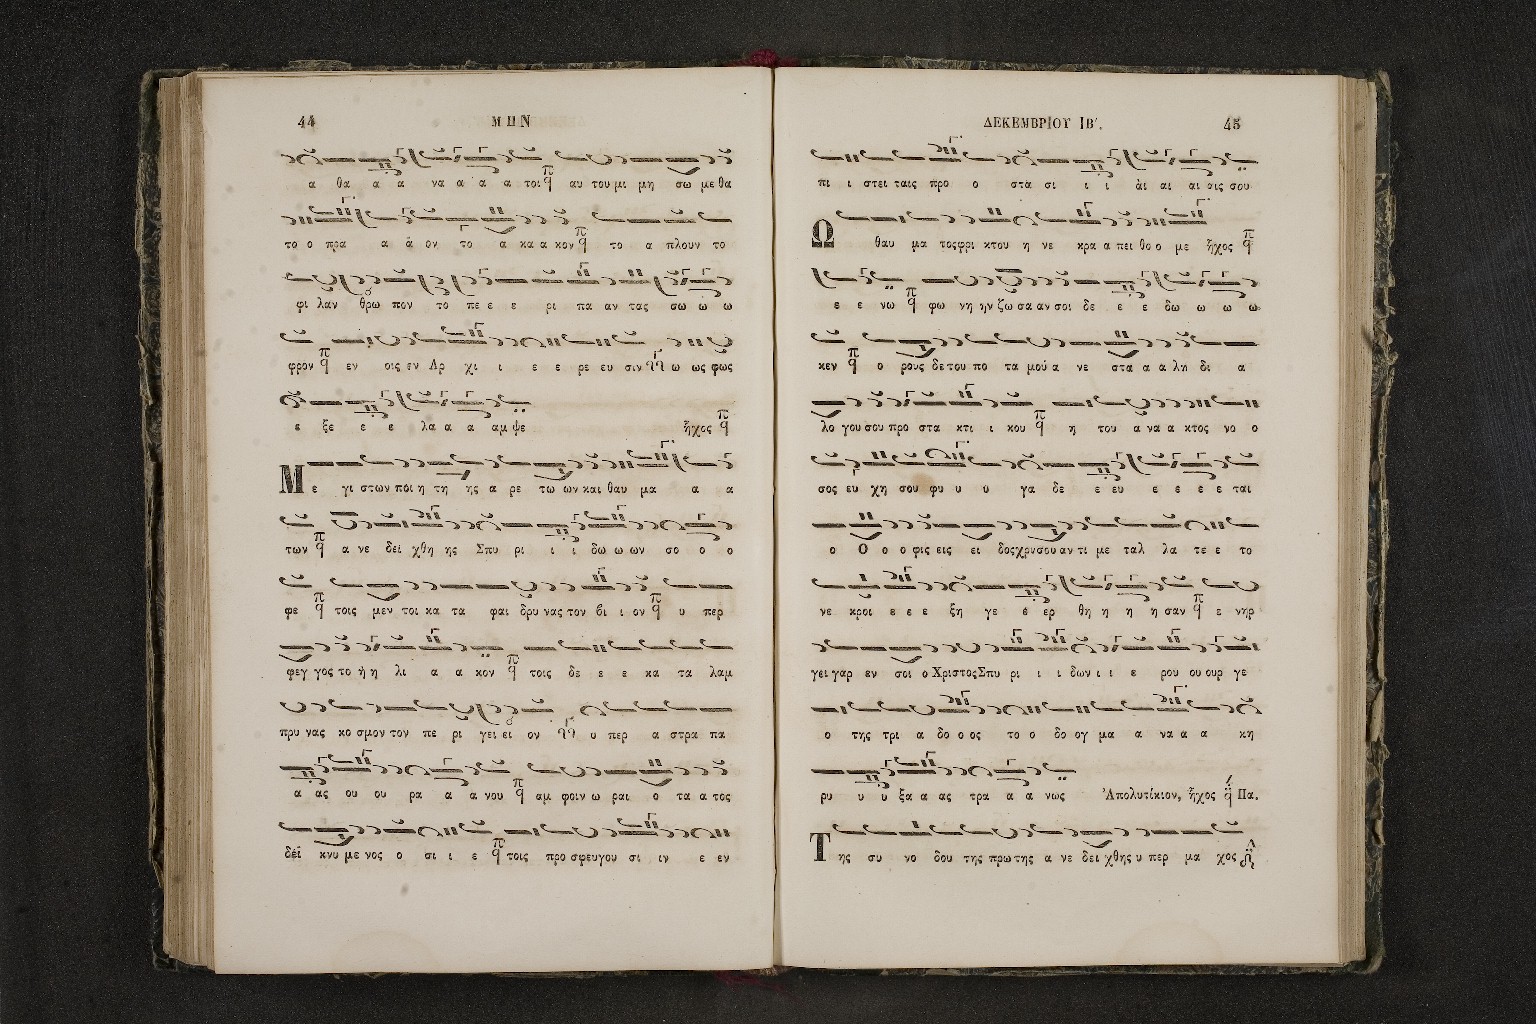 44 ΜΗΝ
α θα α α να α α α τοι αυ του μι μη σω με θα
το ο πρα α α ον το α κα α κον το α πλουν το
φι λαν θρω πον το πε ε ε ρι πα αν τας σω ω ω
φρον εν οις εν Αρ χι ι ε ε ρε ευ σιν ω ως φως
ε ξε ε ε λα α α αμ ψε ἦχος
Με γι στων ποι η τη ης α ρε τω ων και θαυ μα α α
των α νε δει χθη ης Σπυ ρι ι ι δω ω ων σο ο ο
φε τοις μεν τοι κα τα φαι δρυ νας τον βι ι ον υ περ
φεγ γος το ἡ η λι α α κον τοις δε ε ε κα τα λαμ
πρυ νας κο σμον τον πε ρι γει ει ον υ περ α στρα πα
α ας ου ου ρα α α νου αμ φοιν ω ραι ο τα α τος
δει κνυ με νος ο σι ι ε τοις προ σφευγου σι ιν ε εν
ΔΕΚΕΜΒΡΙΟΥ ΙΒ′. 45
πι ι στει ταις προ ο στα σι ι ι ἁι αι αι αις σου
Ω θαυ μα τος φρι κτου η νε κρα α πει θο ο με ἦχος
ε ε νω φω νη ην ζω σα αν σοι δε ε ε δω ω ω ω
κεν ο ρους δε του πο τα μού α νε στα α α λη δι α
λο γου σου προ στα κτι ι κου η του α να α κτος νο ο
σος ευ χη σου φυ υ υ γα δε ε ευ ε ε ε ε ται
ο Ο ο ο φις εις ει δος χρυσου αν τι με ταλ λα τε ε το
νε κροι ε ε ε ξη γε ε ερ θη η η η σαν ε νηρ
γει γαρ εν σοι ο Χριστος Σπυ ρι ι ι δων ι ι ε ρου ου ουρ γε
ο της τρι α δο ο ος το ο δο ογ μα α να α α κη
ρυ υ υ ξα α ας τρα α α νως Ἀπολυτίκιον, ἦχος Πα.
Της συ νο δου της πρω της α νε δει χθης υ περ μα χος